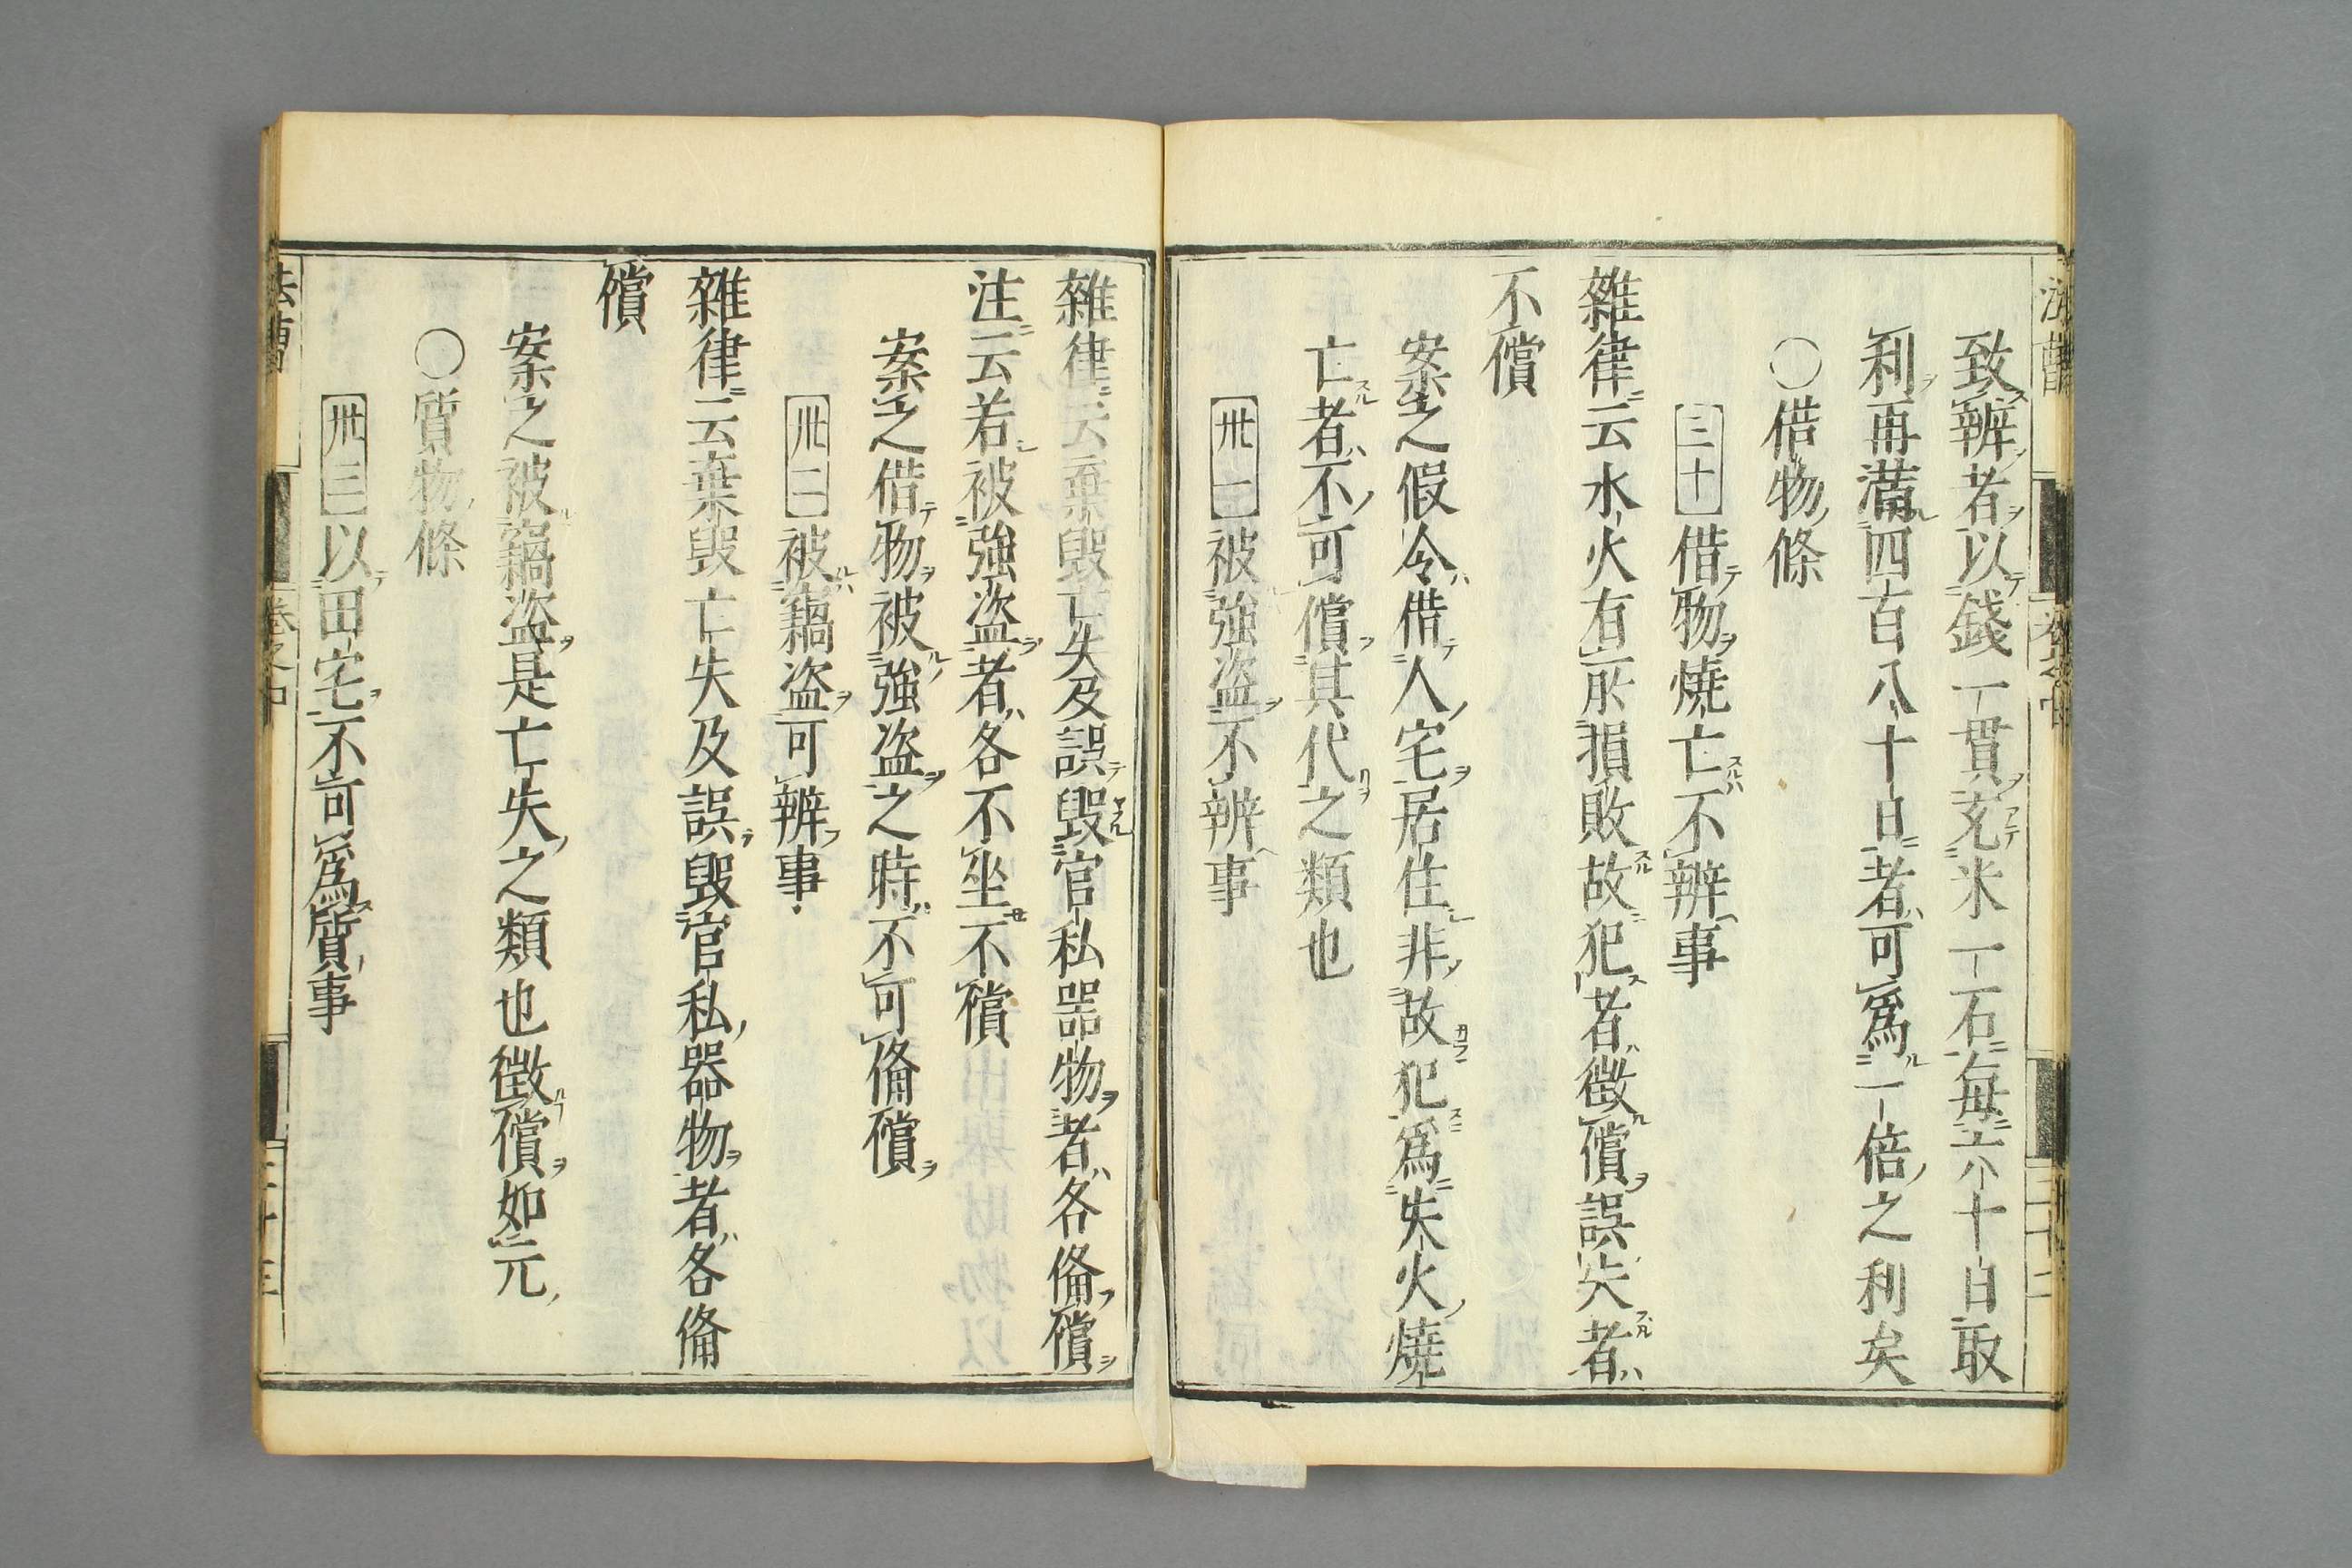 致辨者以錢一貫充米一石每六十日取
利再滿四百八十日者可爲一倍之利矣
〇借物條
三十 借物燒亡不辨事
雜律云水火有所損敗故犯者徵償誤失者
不償
案之假令借人宅居住非故犯爲失火燒
亡者不可償其代之類也
卅一 被強盗不辨事
雜律云棄毀亡失及誤毀官私器物者各備償
注云若被強盗者各不坐不償
案之借物被強盗之時不可備償
卅二 被竊盗可辨事
雜律云棄毀亡失及誤毀官私器物者各備
償
案之被竊盗是亡失之類也徵償如元
〇質物條
卅三 以田宅不可爲質事
法曹
卷之中
三十三